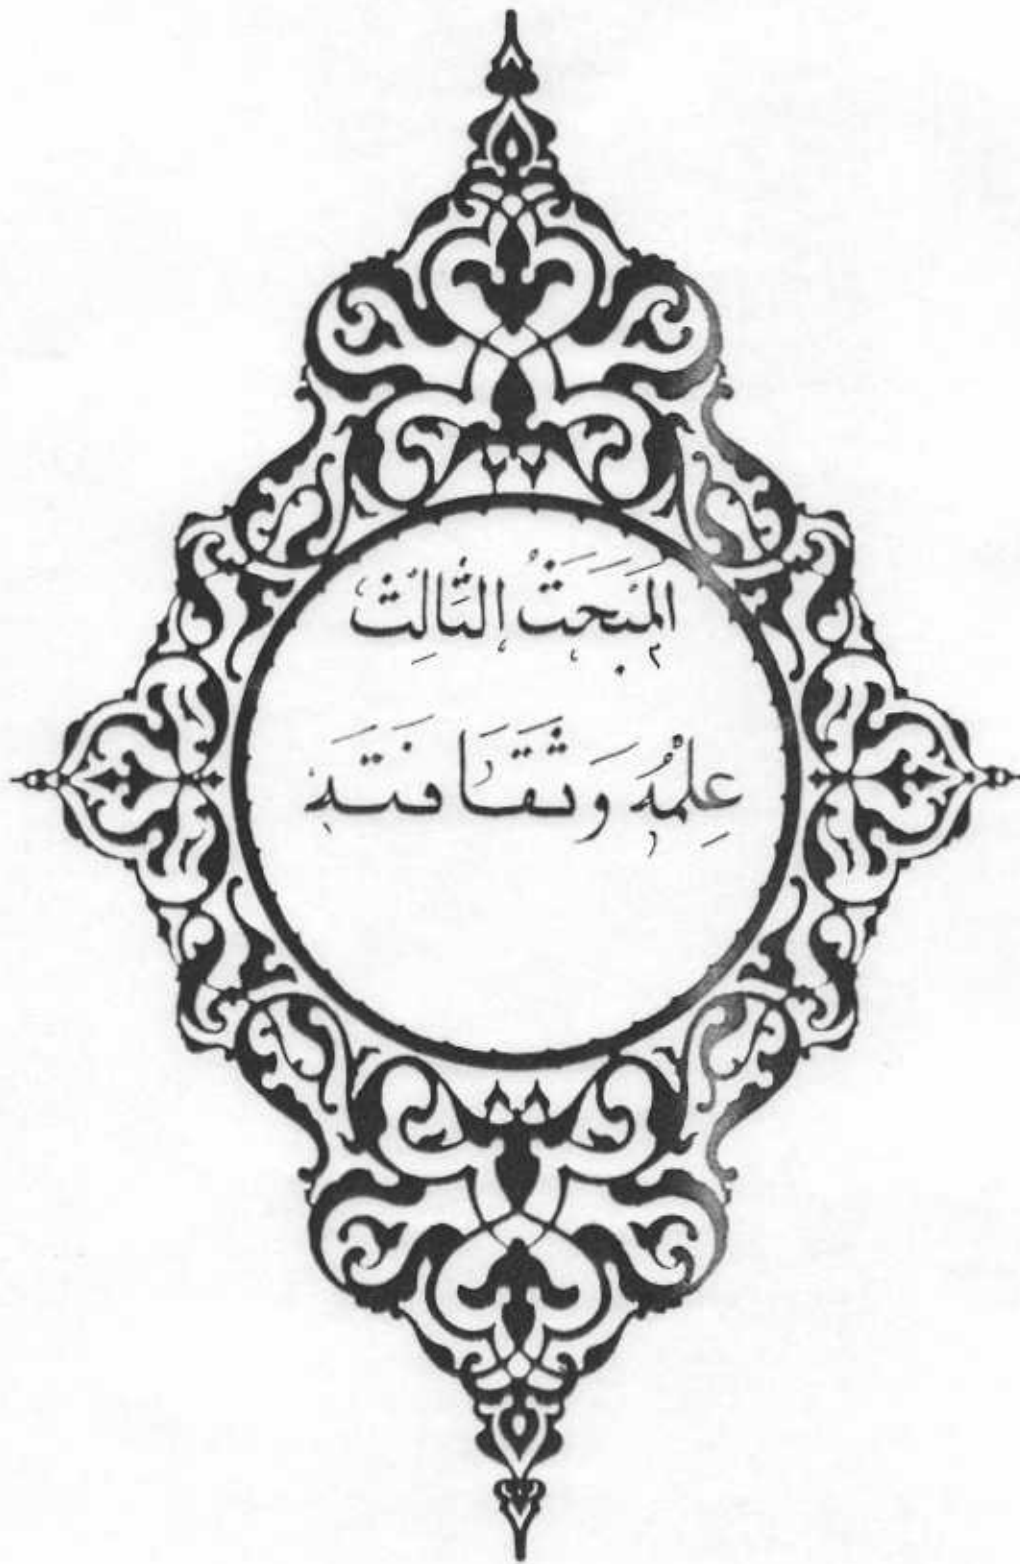 المبحث الثالث
علمه وثقافته